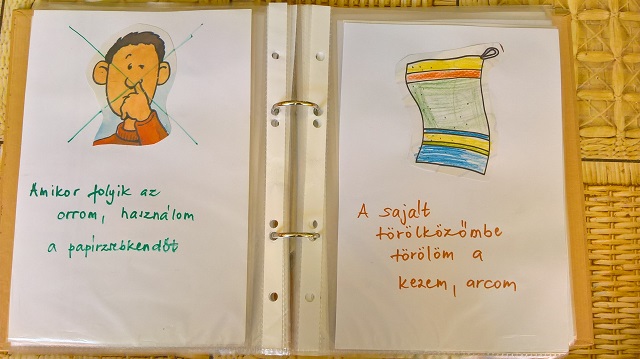 Amikor folyik az
orrom, használom
a papírzsebkendőt
A saját
törölközőmbe
törölöm a
kezem, arcom